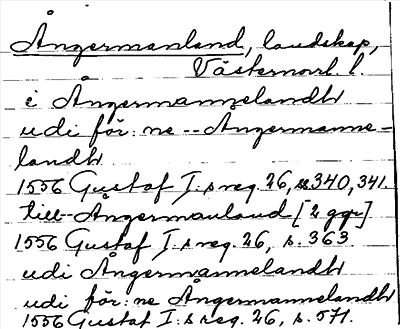 Ångermanland, landskap,
Västernorrl. l.
i Ångermannelandh
udi för: ne -- Angermanne-
landh
1556 Gustaf I:s reg. 26, s. 340, 341.
till Ångermanland [2 ggr]
1556 Gustaf I:s reg. 26, s. 363
udi Ångermannelandh
udi för: ne Ångermannelandh
1556 Gustaf I:s reg. 26, s. 571.